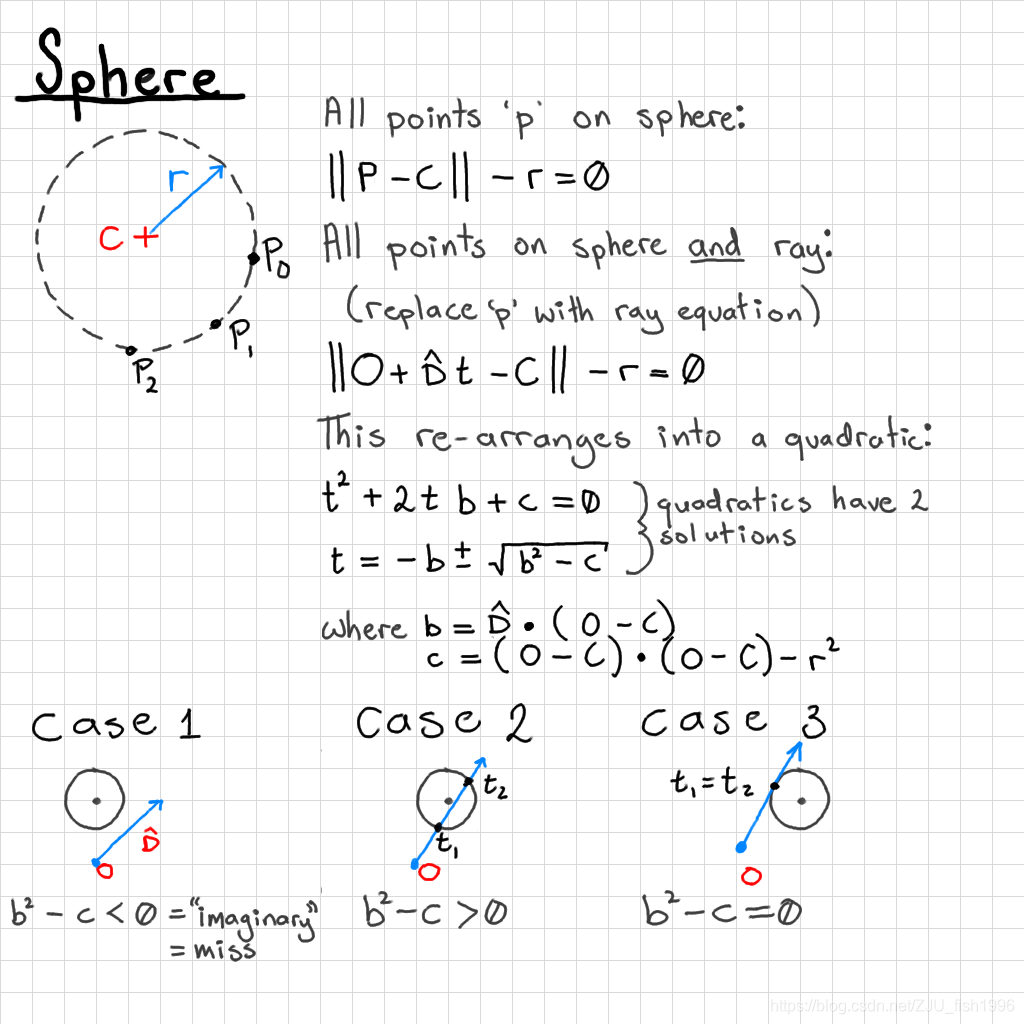 Sphere
r
C
P₀
P₁
P₂
All points 'p' on sphere:
||P - C|| - r = 0
All points on sphere and ray:
(replace 'p' with ray equation)
||O + D̂ t - C|| - r = 0
This re-arranges into a quadratic:
t² + 2 t b + c = 0
t = -b ± √(b² - c)
quadratics have 2
solutions
where b = D̂ • (O - C)
c = (O - C) • (O - C) - r²
Case 1
D̂
O
b² - c < 0 = "imaginary"
= miss
Case 2
t₂
t₁
O
b² - c > 0
Case 3
t₁ = t₂
O
b² - c = 0
https://blog.csdn.net/ZJU_fish1996